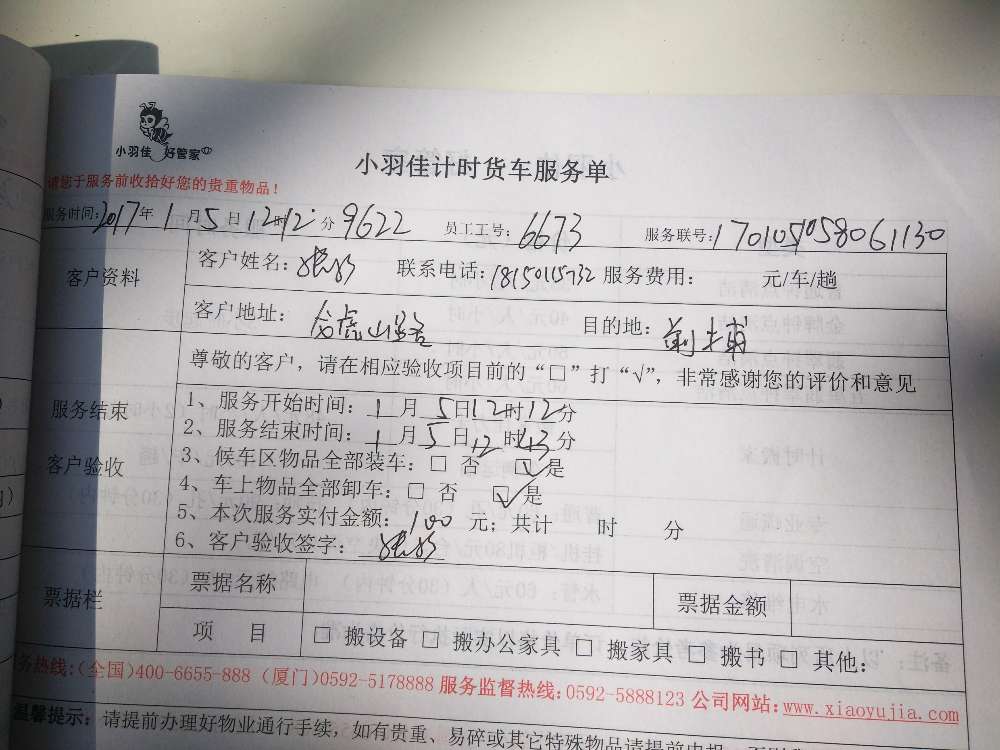 小羽佳 好管家
小羽佳计时货车服务单
请您于服务前收拾好您的贵重物品！
服务时间:2017年1月5日12时12分 9622 员工工号: 6673 服务联号:1701051058061130
客户资料 客户姓名: 联系电话:18150115732 服务费用: 元/车/趟
客户地址: 虎山路 目的地: 前埔
尊敬的客户，请在相应验收项目前的“□”打“√”，非常感谢您的评价和意见
服务结束
客户验收
1、服务开始时间: 1月5日12时12分
2、服务结束时间: 1月5日12时43分
3、候车区物品全部装车: □ 否 ☑ 是
4、车上物品全部卸车: □ 否 ☑ 是
5、本次服务实付金额: 100 元; 共计 时 分
6、客户验收签字:
票据栏 票据名称 票据金额
项 目 □ 搬设备 □ 搬办公家具 □ 搬家具 □ 搬书 □ 其他:
务热线:(全国)400-6655-888 (厦门)0592-5178888 服务监督热线:0592-5888123 公司网站:www.xiaoyujia.com
温馨提示: 请提前办理好物业通行手续，如有贵重、易碎或其它特殊物品请提前申报